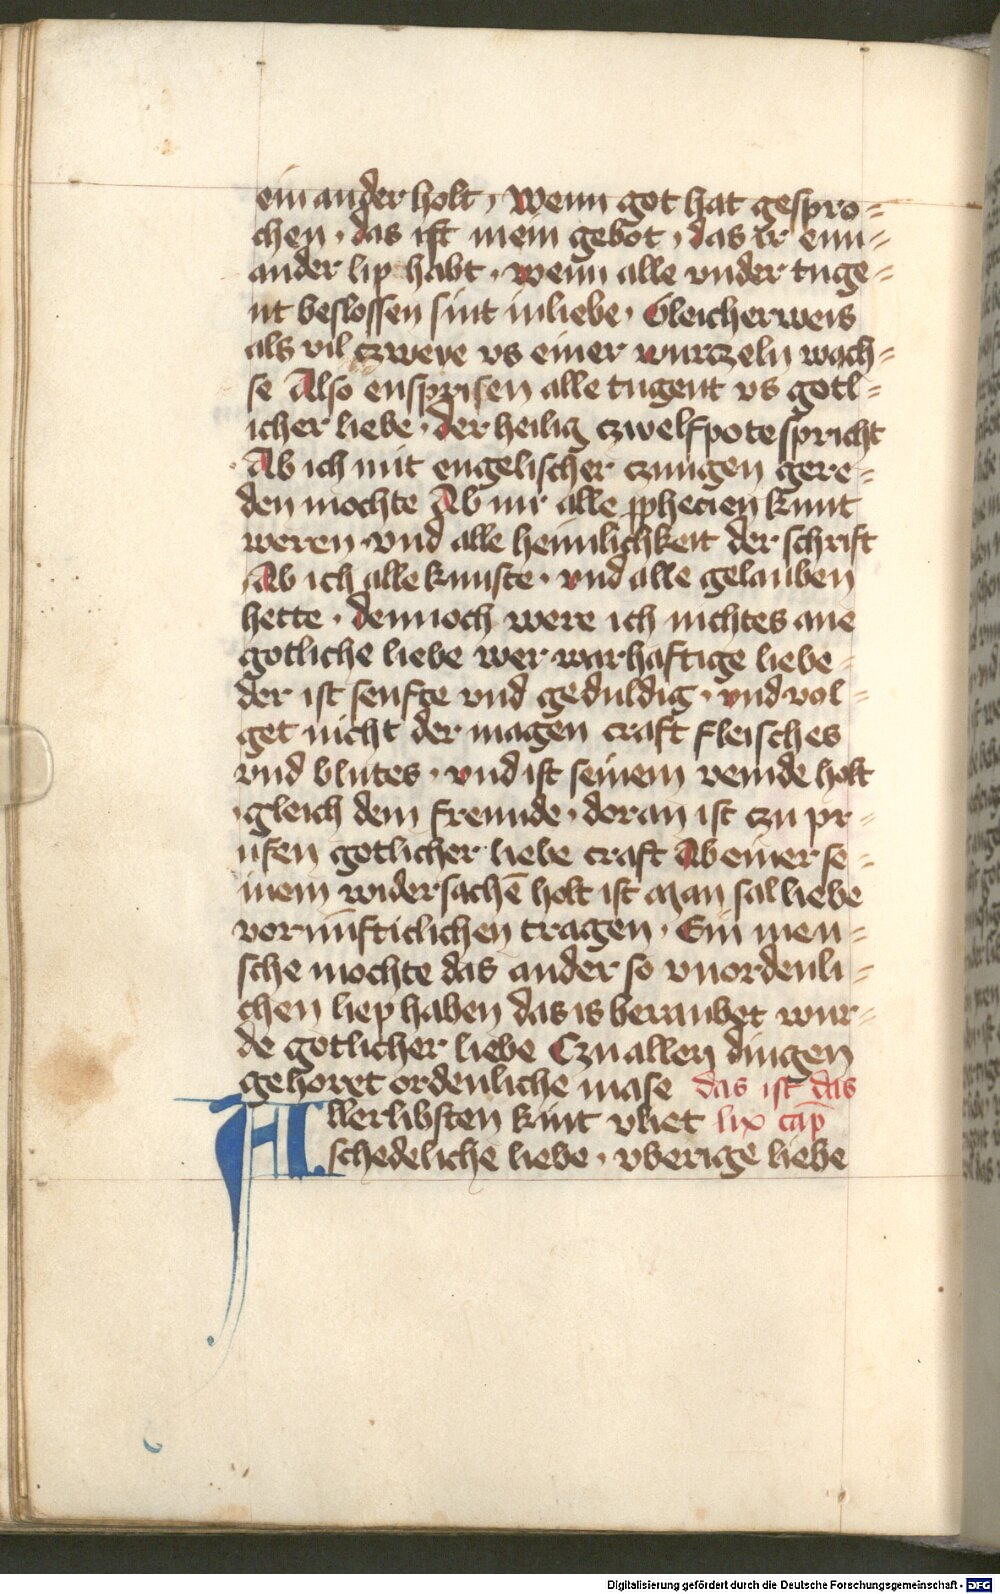 ein ander holt · Wenn got hat gespro=
chen · das ist mein gebot · das ir enn=
ander lip habt · wenn alle vnder tuge=
nt beslossen sint in liebe · Gleicherweis
als vil czweye vs einer wurczeln wach=
se Also enspzisen alle tugent vs gotl=
icher liebe · der heilig czwelfpote spricht
Ab ich mit engelischer czungen gere=
den mochte Ab mir alle ꝓphecien kunt
weren · vnd alle heimlichkeit der schrift
Ab ich alle kunste · vnd alle gelauben
hette · dennoch were ich nichtes ane
gotliche liebe wer warhaftige liebe=
der ist senfte vnd geduldig · vnd vol=
get nicht der magen craft fleisches
vnd blutes · vnd ist seinem veinde holt
gleich dem freunde · doran ist czu pr=
ufen gotlicher liebe craft Ab einer se=
inem widersachē holt ist Man sal liebe
vornūfticlichen tragen · Ein men=
sche mochte das ander so vnordenli=
chen liep haben das is beraubet wur=
de gotlicher liebe Czu allen dingen
gehoret ordenliche mase das ist das
ALllerlibsten kint vliet lix cap̄
schedeliche liebe · vberige liebe
Digitalisierung gefördert durch die Deutsche Forschungsgemeinschaft - DFG